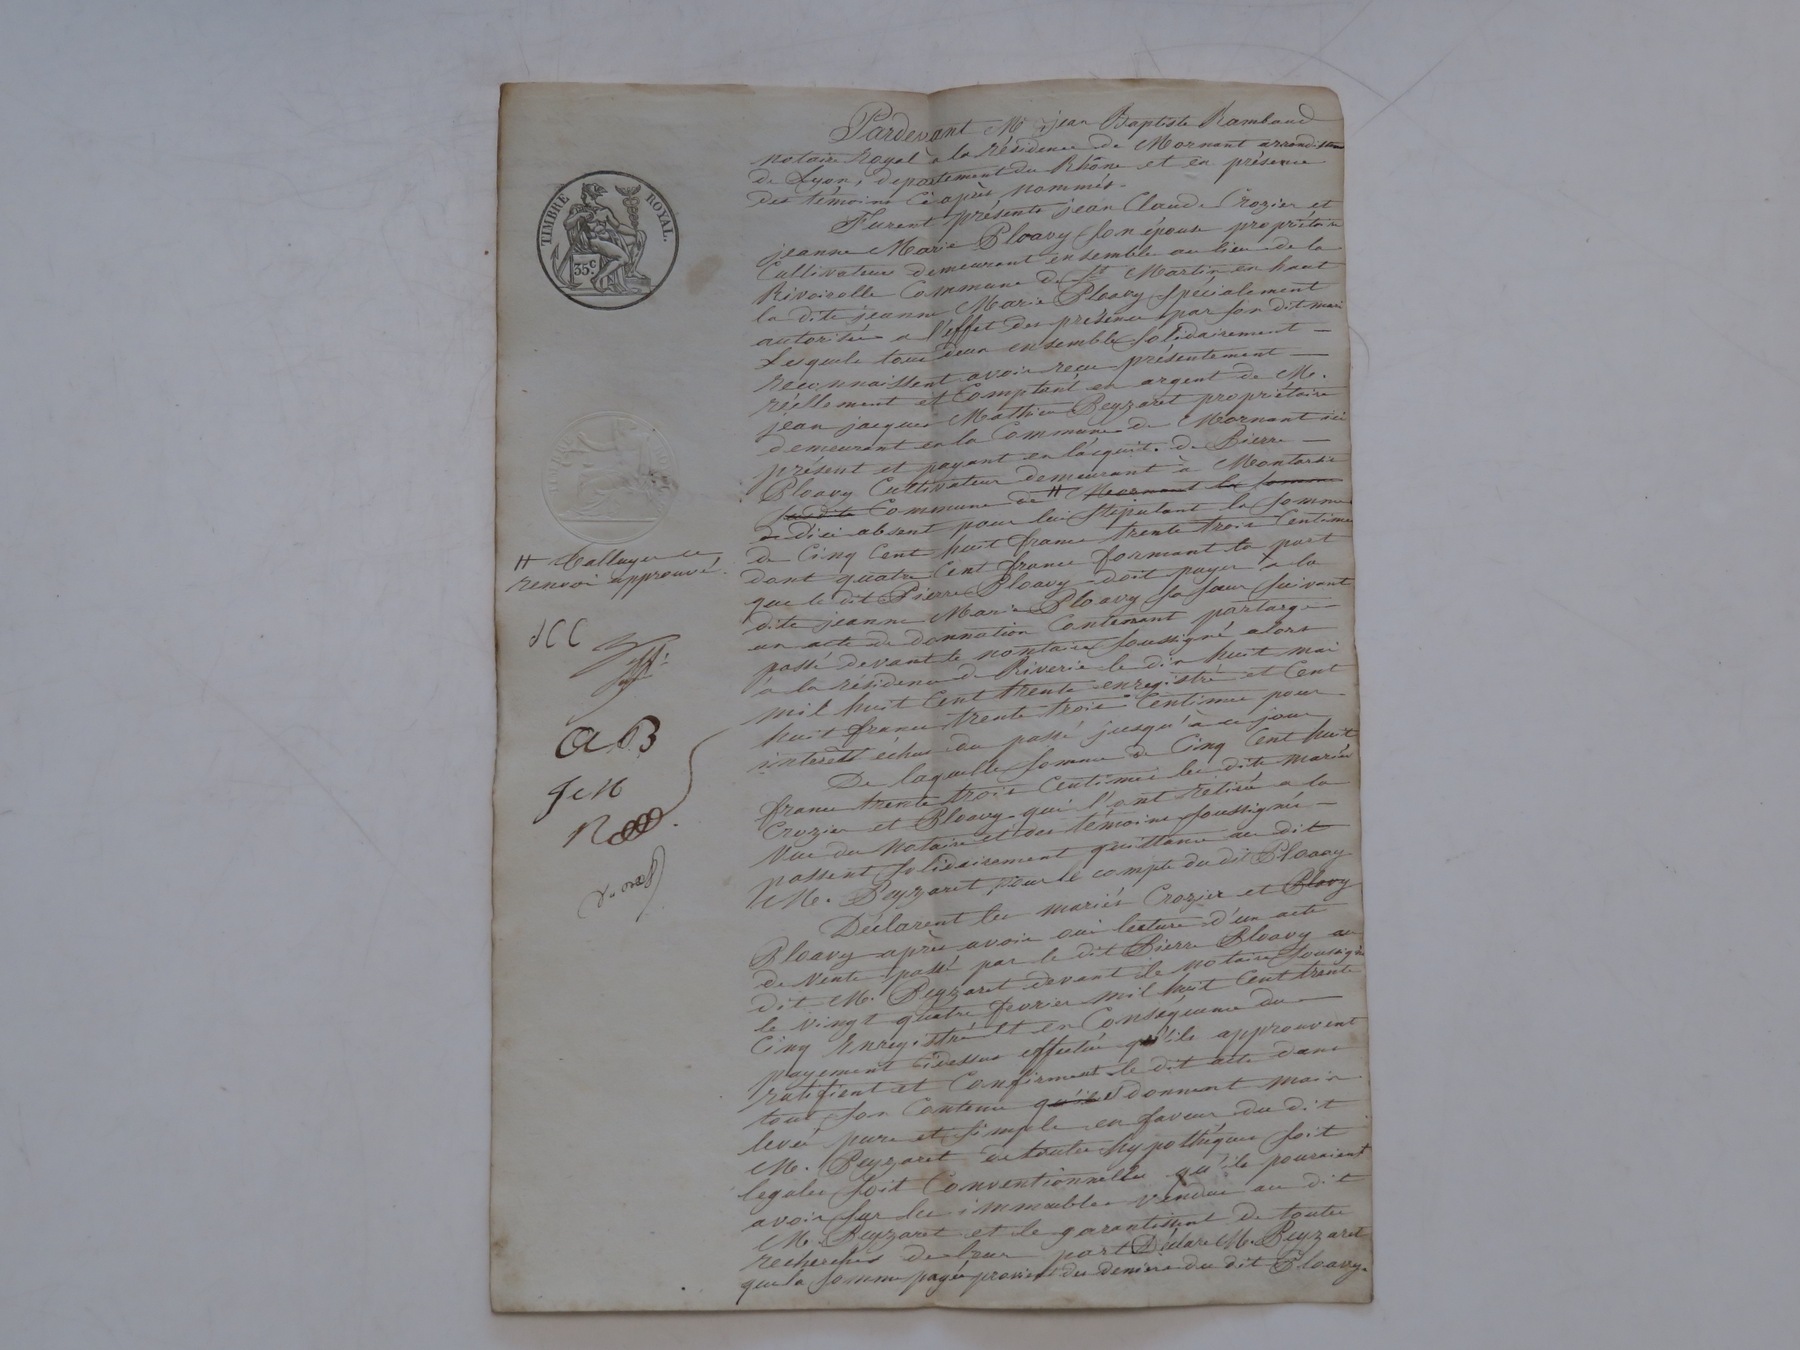 TIMBRE ROYAL.
35 c.
Pardevant Me jean Baptiste Rambaud
notaire Royal à la résidence de Mornant arrondissem
de Lyon, département du Rhône et en présence
des témoins Ci après nommés.
Furent présents jean Claude Crozier et
jeanne Marie Ploavy son épouse propriétaire
Cultivateurs demeurant ensemble au lieu de la
Rivoirolle Commune de St Martin en haut
la dite jeanne Marie Ploavy spécialement
autorisée a l'effet des présentes par son dit mari
Lesquels tous deux ensemble solidairement —
reconnaissent avoir reçu présentement —
réellement et Comptant en argent de M.
jean jacques Mathieu Peyzaret propriétaire
demeurant en la Commune de Mornant ici
présent et payant en l'acquit de Pierre —
Ploavy Cultivateur demeurant à
Commune de # Mornant la somme
dici absent pour lui stipulant la somme
de Cinq Cent huit francs trente trois Centimes
dont quatre Cent francs formant la part
que le dit Pierre Ploavy doit payer à la
dite jeanne Marie Ploavy sa sœur suivant
un acte de donnation Contenant partage —
passé devant le notaire soussigné alors
à la résidence de Riverie le dix huit mai
mil huit Cent trente enregistré et Cent
huit francs trente trois Centimes pour
interêts échus du passé jusqu'à ce jour
De laquelle somme de Cinq Cent huit
francs trente trois Centimes les dits mariés
Crozier et Ploavy qui l'ont retirée a la
vue du notaire et des témoins soussignés —
passent solidairement quittance au dit
M. Peyzaret pour le compte du dit Ploavy
Déclarent les mariés Crozier et Plovy
Ploavy après avoir oui lecture d'un acte
de vente passé par le dit Pierre Ploavy au
dit M. Peyzaret devant le notaire soussigné
le vingt quatre fevrier mil huit Cent trente
Cinq Enregistré et en Conséquence du —
payement cidessus effectué qu'ils approuvent
ratifient et Confirment le dit acte dans
tout son Contenu qu'ils donnent main
levée pure et simple en faveur du dit
M. Peyzaret de toutes hypothèques soit
legales soit Conventionnelles qu'ils pouraient
avoir sur les immeubles vendus au dit
M. Peyzaret et le garantissent de toutes
recherches de leur part Déclare M. Peyzaret
que la somme payée provient des deniers du dit Ploavy.
# ce
renvoi approuvé.
JCC
AB